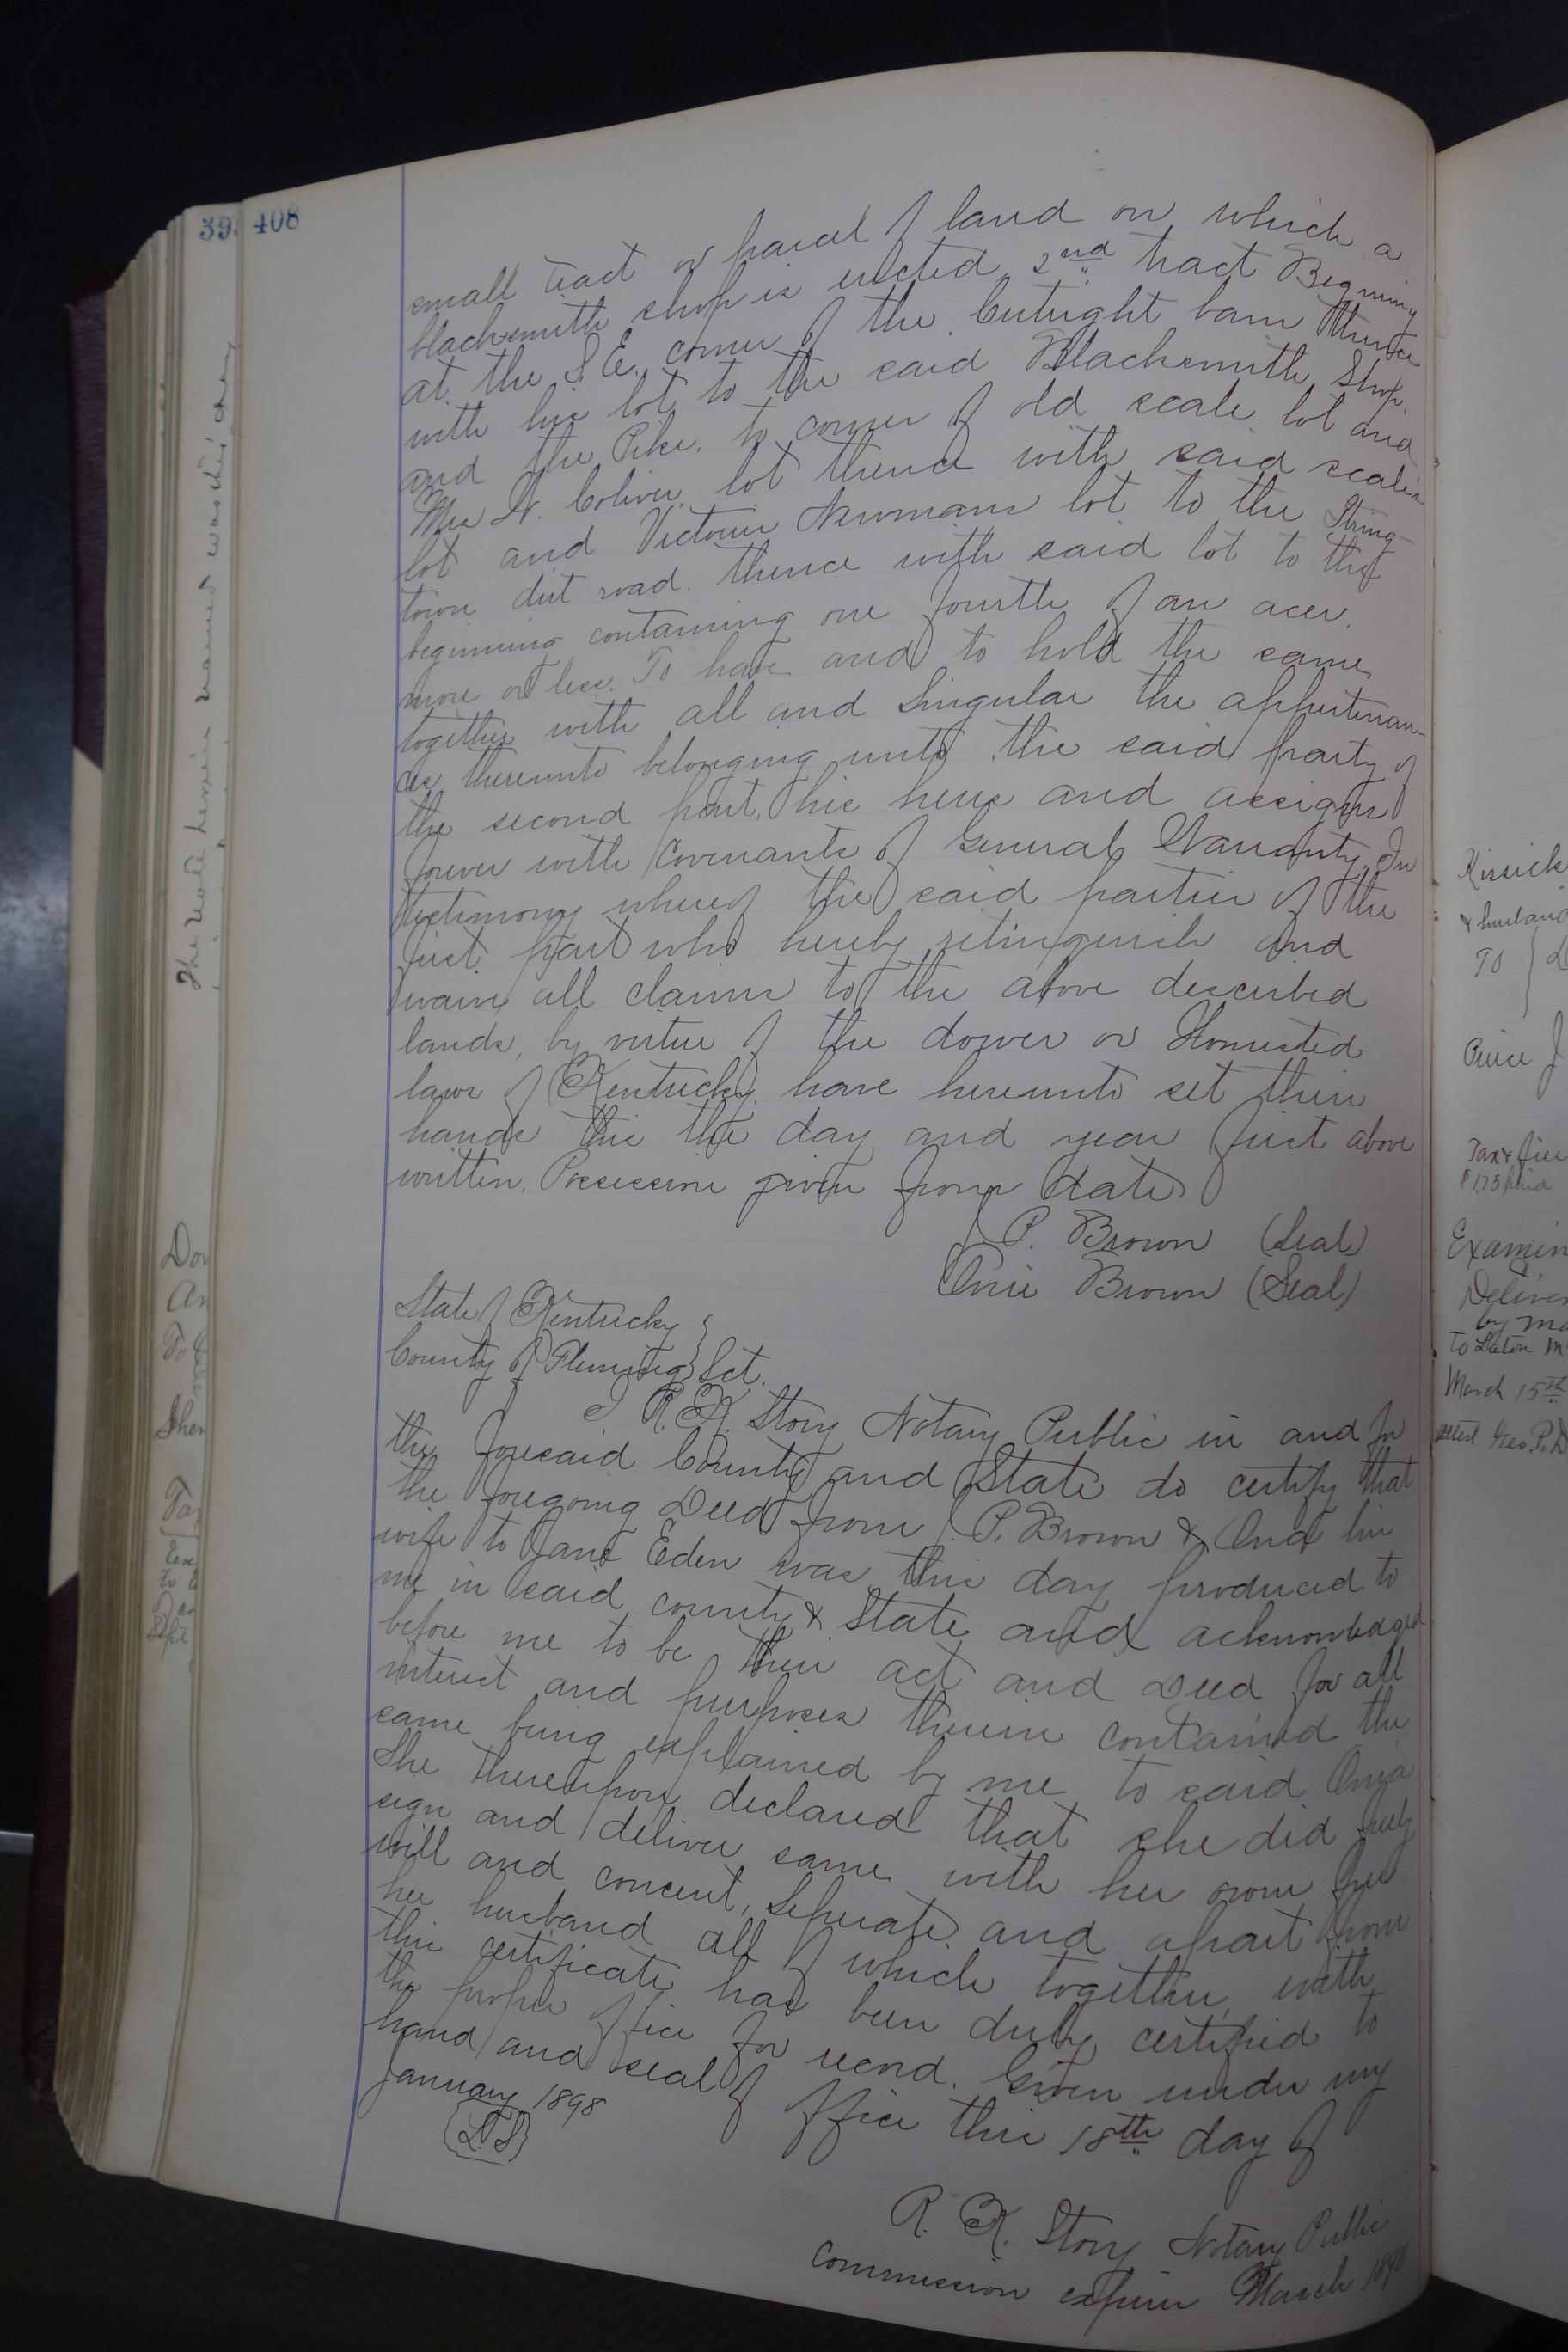 39
408
small tract or parcel of land on which a
blacksmith shop is erected, 2nd tract Begining
at the S.E. corner of the Cutright barn thence
with his lot to the said Blacksmith Shop,
and the Pike, to corner of old scale lot and
Mrs N. lot thence with said scales
lot and Victoria Newmans lot to the String-
town dirt road. thence with said lot to the
beginning containing one fourth of an acer.
more or less. To have and to hold the same
together with all and Singular the appurtenan-
ces thereunto belonging unto the said party of
the second part, his heirs and assigns
forever with Covenants of General Warranty. In
testimony whereof the said parties of the
first part who hereby relinquish and
waive all claims to the above described
lands, by virtue of the dower or Homested
laws of Kentucky. have hereunto set their
hands this the day and year first above
written. Possession given from date
P. Brown (Seal)
Brown (Seal)
State of Kentucky
County of Fleming } Sct.
I R.K. Story Notary Public in and for
the foresaid County and State do certify that
the foregoing Deed from P. Brown & his
wife to Jane Eden was this day produced to
me in said county & State and acknowledged
before me to be their act and Deed for all
interest and purposes therein contained the
same being explained by me to said
She thereupon declared that she did freely
sign and deliver same with her own free
will and concent, Seperate and apart from
her husband all of which together with
this certificate has been duly certified to
the proper office for record. Given under my
hand and seal of office this 18th day of
January 1898
(L.S)
R. K. Story Notary Public
commission expires March
Kissick
& husband
TO
Peirce J
Tax &
$1.75 paid
Examin
Deliver
by
to Laton M
March 15th
attest Geo. P. D
Don
An
To
Sher
Tax